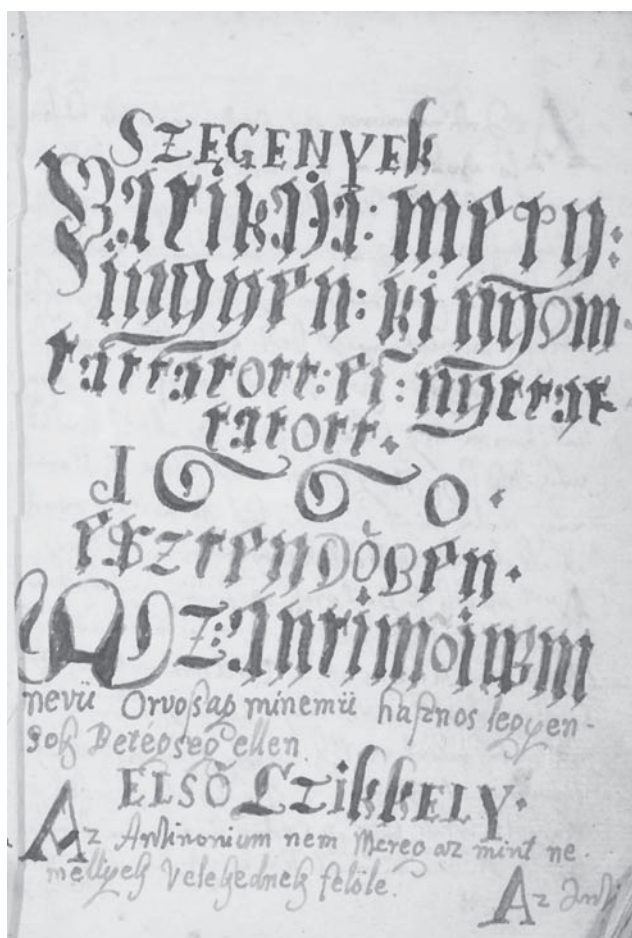 SZEGENYEk
Patikaja: mely:
ingyen: ki nyom
tattatott: es: nyittat
tatott.
1660.
esztendöben.
AZ: Antimoium
nevü Orvoßag minemü hasznos legyen-
sok Betegseg ellen
ELSÖ CZikkELY.
Az Antinonium nem Mereg az mint ne-
mellyek velekednek felöle.
Az Anti